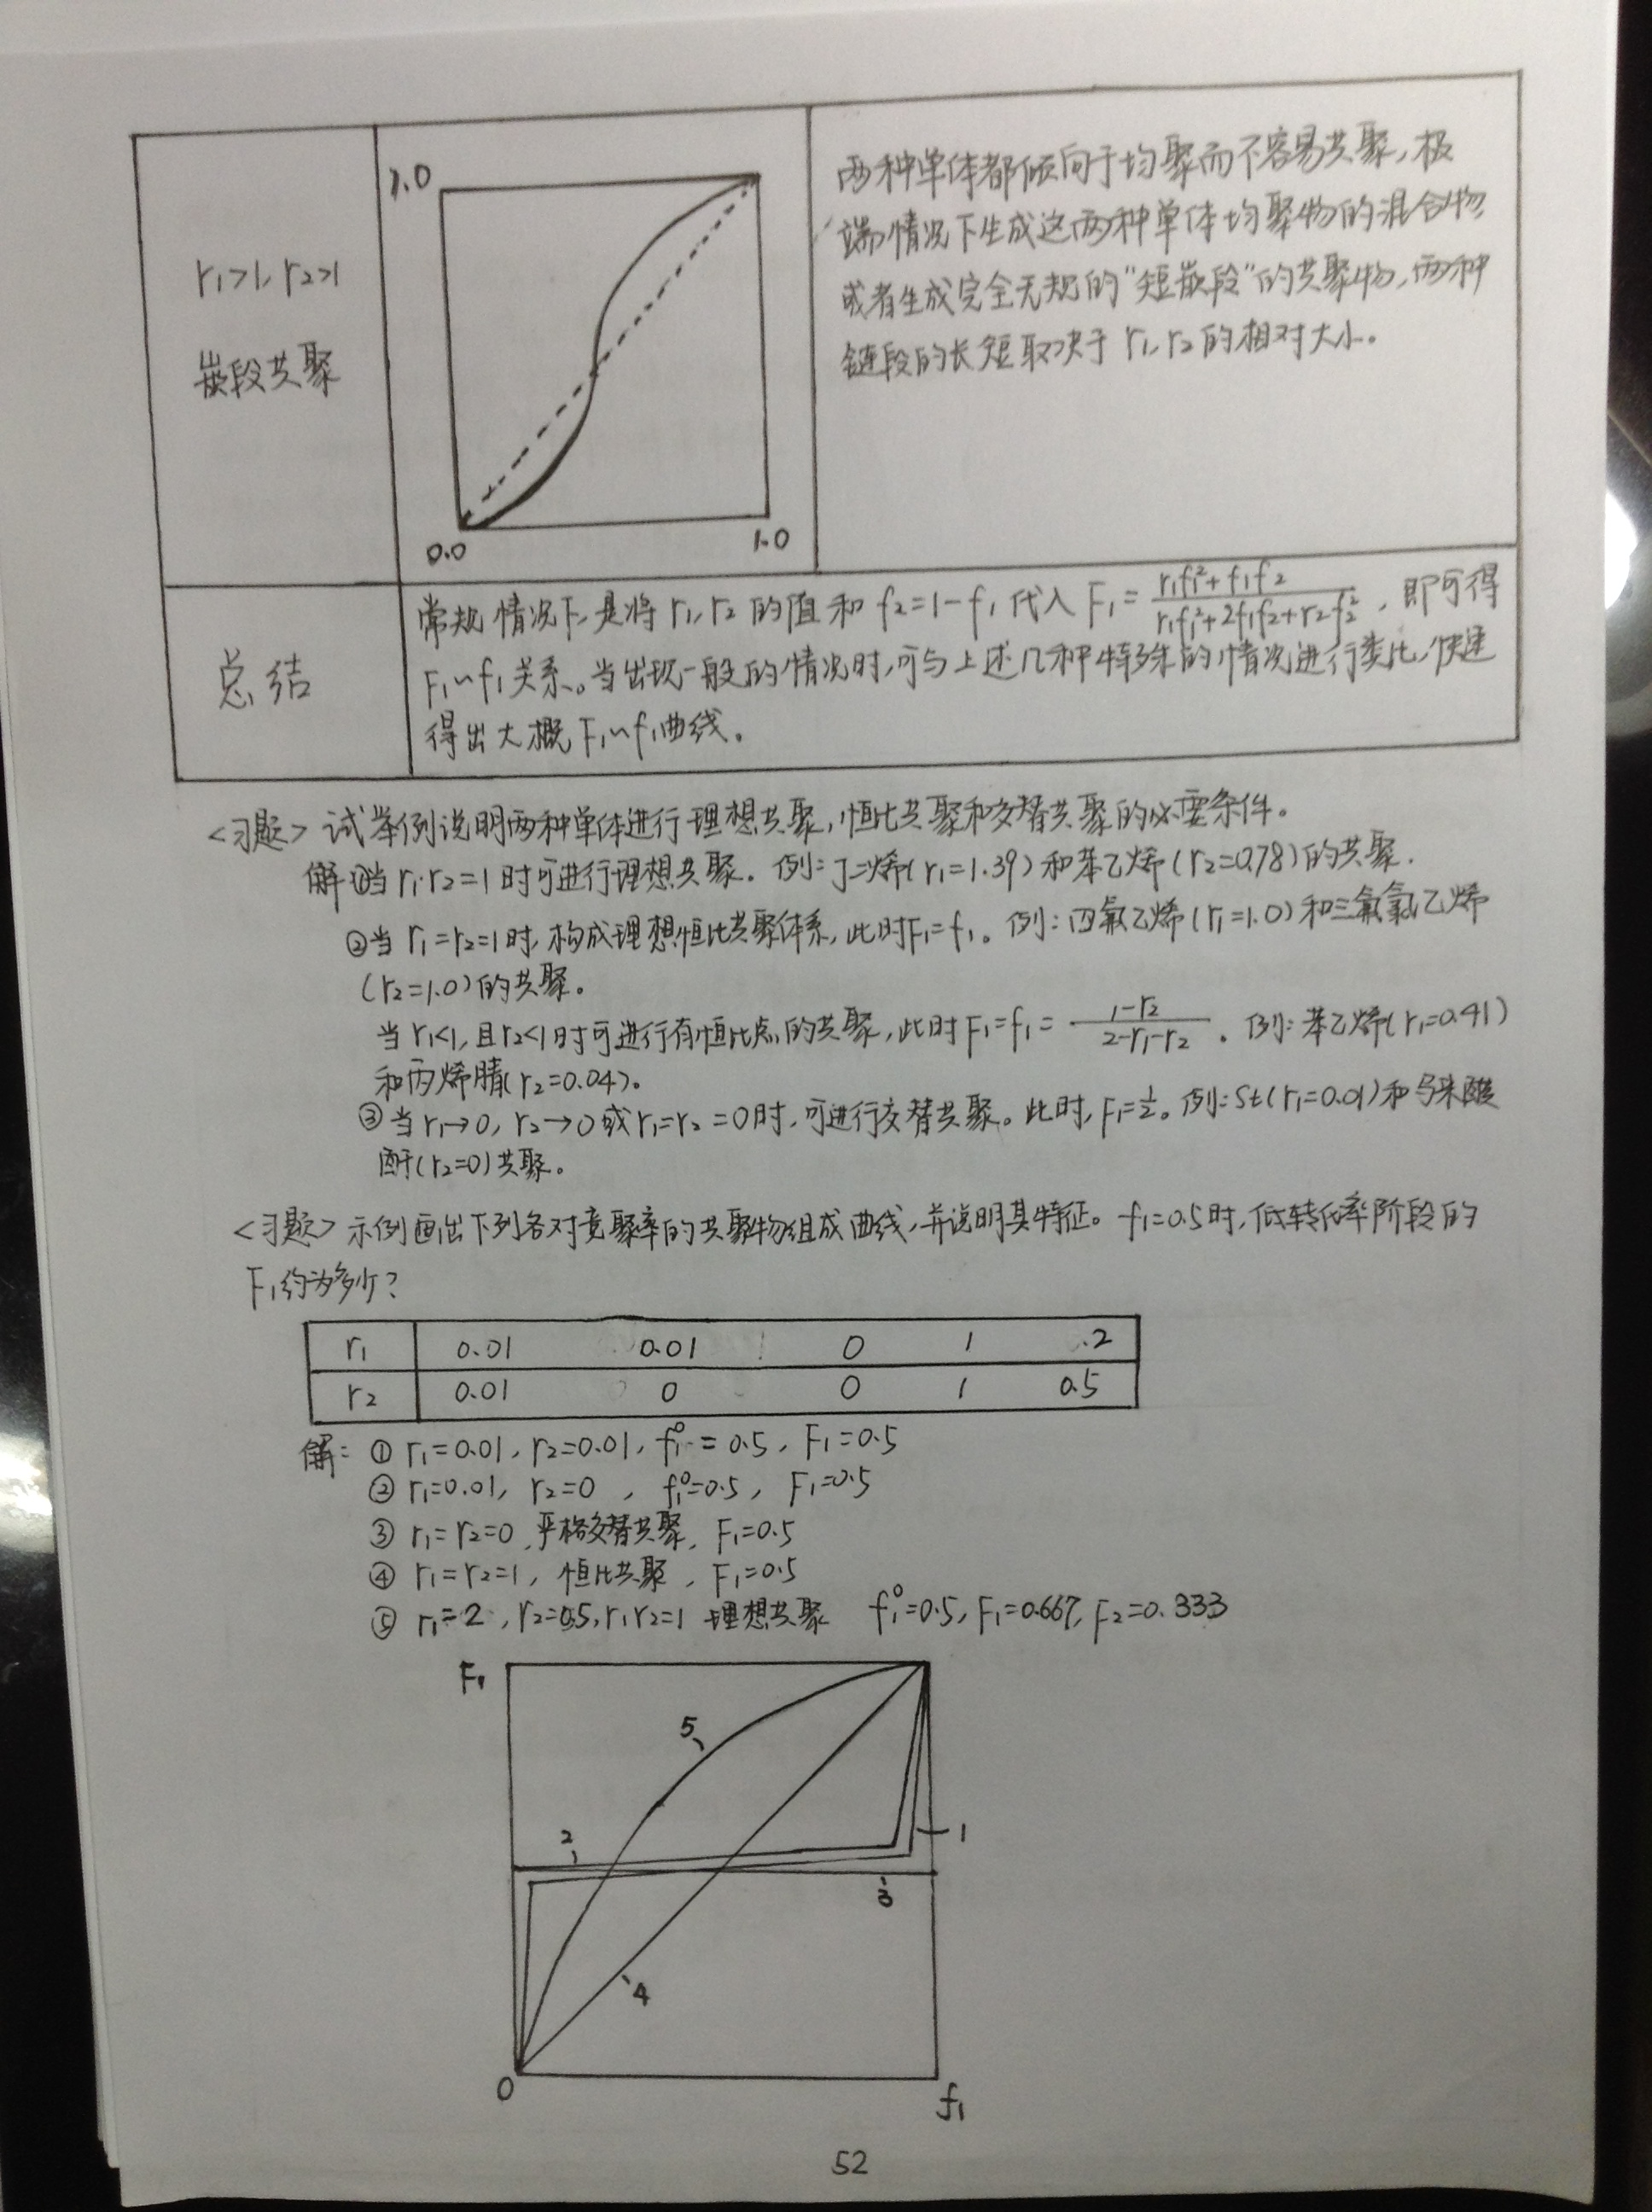 r₁>1, r₂>1
嵌段共聚
1.0
0.0
1.0
两种单体都倾向于均聚而不容易共聚,极
端情况下生成这两种单体均聚物的混合物
或者生成完全无规的“短嵌段”的共聚物,两种
链段的长短取决于 r₁, r₂ 的相对大小。
总结
常规情况下,是将 r₁, r₂ 的值和 f₂=1-f₁ 代入 F₁ = (r₁f₁²+f₁f₂)/(r₁f₁²+2f₁f₂+r₂f₂²), 即可得
F₁~f₁关系。当出现一般的情况时,可与上述几种特殊的情况进行类比,快速
得出大概 F₁~f₁曲线。
<习题> 试举例说明两种单体进行理想共聚,恒比共聚和交替共聚的必要条件。
解:①当 r₁·r₂=1 时可进行理想共聚. 例:丁二烯(r₁=1.39)和苯乙烯(r₂=0.78)的共聚.
②当 r₁=r₂=1时,构成理想恒比共聚体系,此时F₁=f₁。例:四氟乙烯(r₁=1.0)和三氟氯乙烯
(r₂=1.0)的共聚。
当 r₁<1, 且r₂<1时可进行有恒比点的共聚,此时 F₁=f₁= (1-r₂)/(2-r₁-r₂) 。例:苯乙烯(r₁=0.41)
和丙烯腈(r₂=0.04)。
③当 r₁→0, r₂→0或r₁=r₂=0时,可进行交替共聚。此时,F₁=½。例:St(r₁=0.01)和马来酸
酐(r₂=0)共聚。
<习题> 示例画出下列各对竞聚率的共聚物组成曲线,并说明其特征。f₁=0.5时,低转化率阶段的
F₁约为多少?
r₁ 0.01 0.01 0 1 2
r₂ 0.01 0 0 1 0.5
解: ① r₁=0.01, r₂=0.01, f₁⁰=0.5, F₁=0.5
② r₁=0.01, r₂=0, f₁⁰=0.5, F₁=0.5
③ r₁=r₂=0,严格交替共聚, F₁=0.5
④ r₁=r₂=1, 恒比共聚, F₁=0.5
⑤ r₁=2, r₂=0.5, r₁r₂=1 理想共聚 f₁⁰=0.5, F₁=0.667, F₂=0.333
F₁
5
2
1
3
4
0
f₁
52